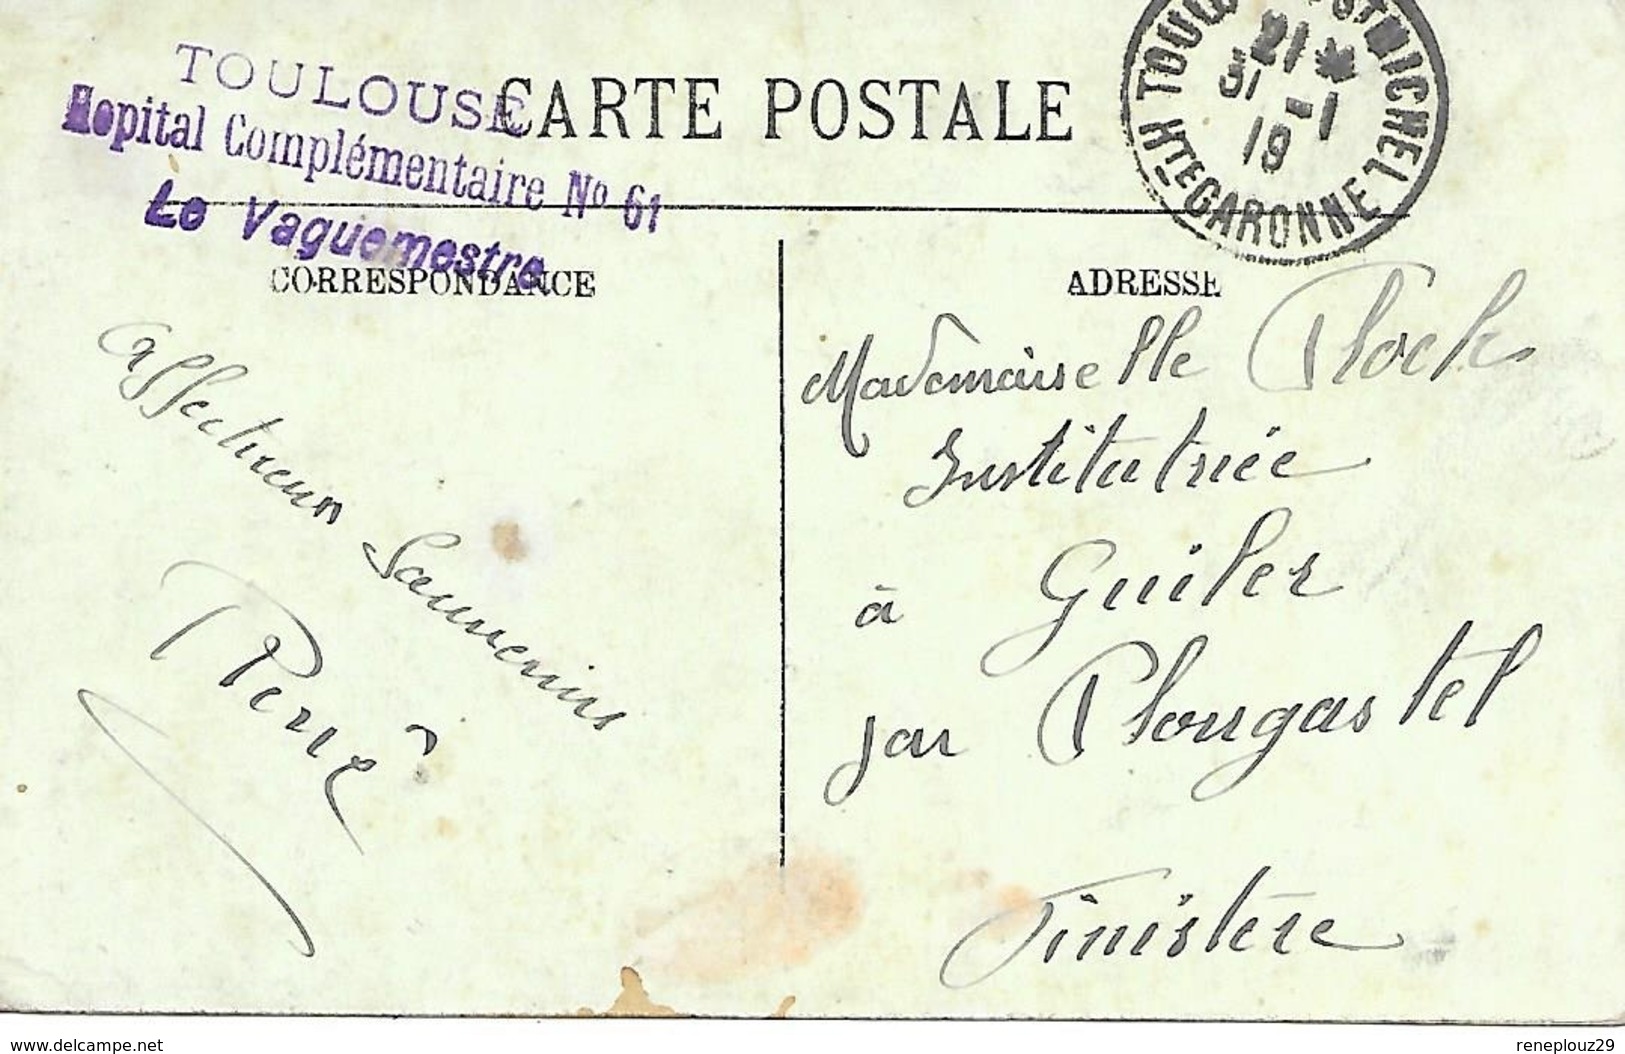 TOULOUSE
Hopital Complémentaire No 61
Le Vaguemestre
CARTE POSTALE
ST MICHEL
21 *
31 -1
19
Hte GARONNE
CORRESPONDANCE
ADRESSE
Affectueux Souvenirs
René
Mademoiselle Plock
Institutrice
à Guiler
par Plougastel
Finistère
delcampe.net
reneplouz29